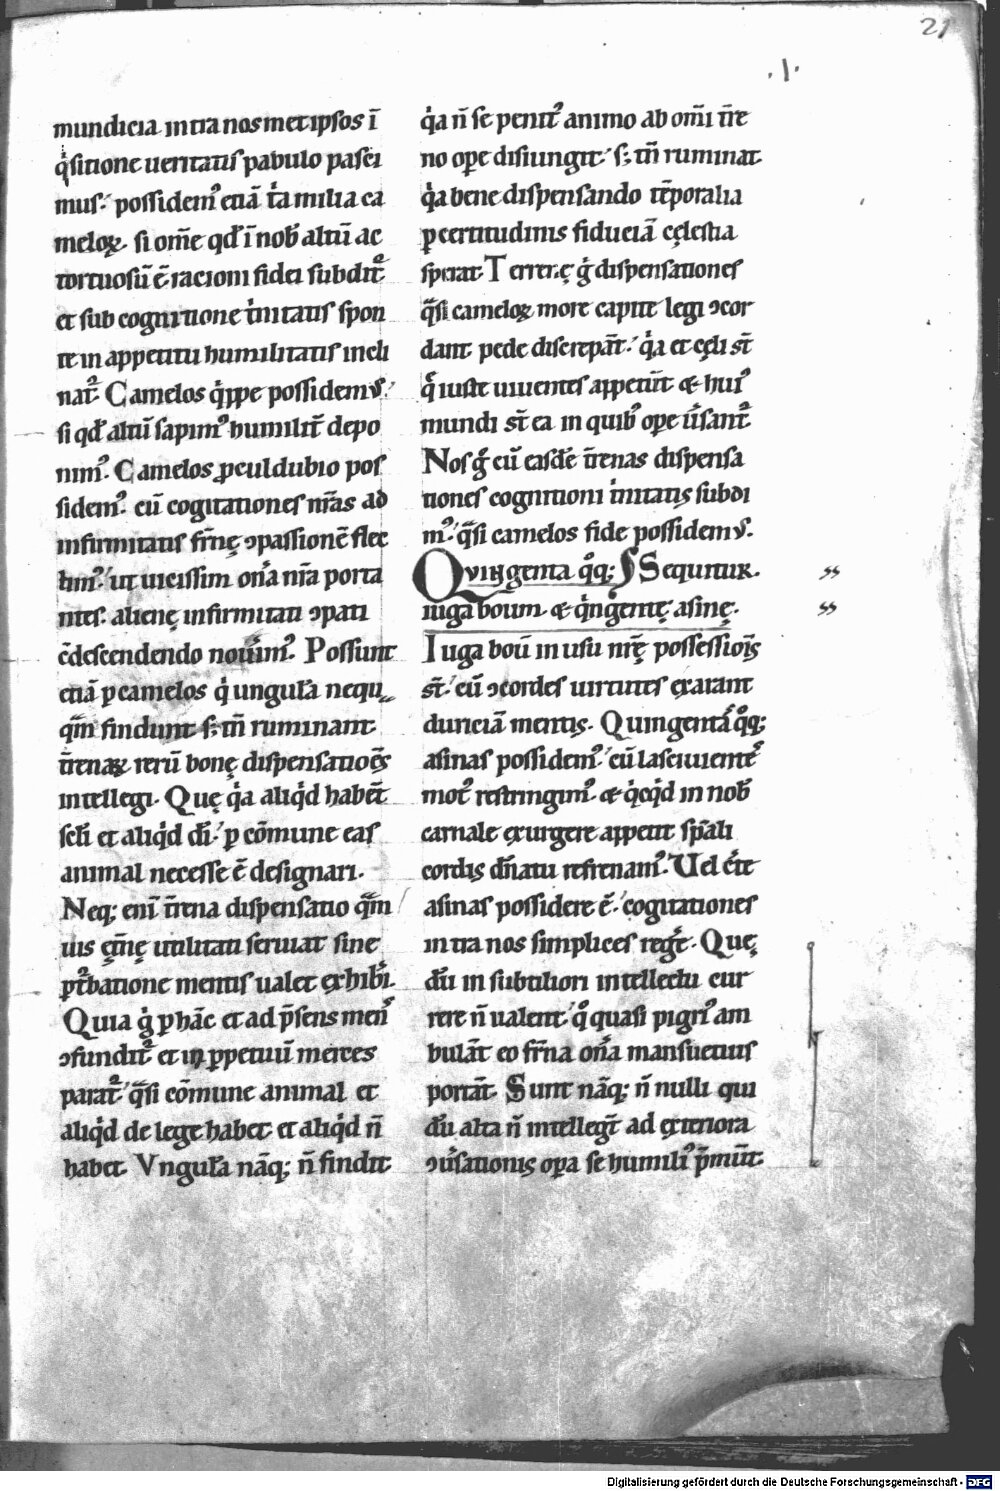 21
.I.
mundicia intra nosmet ipsos ī
q̇sitione ueritatis pabulo pasci
mus. possidem᷒ etiā t͛ia milia ca
meloꝝ. si om̄e qd̓ ī nob̓ altū ac
tortuosū ē racioni fidei subdit᷑
et sub cognitione t͛nitatis spon
te in appetitu humilitatis incli
nat᷑. Camelos q͛ppe possidem᷒.
si qd̓ altū sapim᷒ humilit̄ depo
nim᷒. Camelos ꝓculdubio pos
sidem᷒. cū cogitationes nr̄as ad
infirmitatis fr̄nę ↄpassionē flec
tim᷒. ut uicissim on͛a nr̄a porta
ntes. alienę infirmitati ↄpati
ↄ̄descendendo nou͛im᷒. Possunt
etiā ꝑ camelos q͛ ungulā nequa
q̄m findunt s; tm̄ ruminant
t̄renaꝝ rerū bonę dispensatioēs
intellegi. Quę q͛a aliq͛d habēt
sc̄li et aliq͛d dī. ꝑ cōmune eas
animal necesse ē designari.
Neq; enī t̄rena dispensatio q̄m
uis ęt̄nę utilitati seruiat sine
ꝑt᷑batione mentis ualet exhib͛i.
Quia g͛ ꝑ hāc et ad p̄sens men᷒
ↄfundit᷑ et in ꝑpetuū merces
parat᷑. q̄si cōmune animal et
aliq͛d de lege habet et aliq͛d ñ
habet. Vngulā nāq; ñ findit
q͛a ñ se penit᷒ animo ab om̄i t̄re
no oꝑe disiungit. s; tm̄ ruminat
q͛a bene dispensando tēporalia
ꝑ certitudinis fiduciā cęlestia
sperat. Terrenę g͛ dispensationes
q̄si cameloꝝ more capite legi ↄcor
dant pede discrepāt. q͛a et cęli st̄
q͛ iuste uiuentes appetūt & hui᷒
mundi st̄ ea in quib᷒ oꝑe u͛sant᷑.
Nos g͛ cū easdē t̄renas dispensa
tiones cognitioni t͛nitatis subdi
m᷒. q̄si camelos fide possidem᷒.
Qvingenta q̊q; Sequitur.
iuga boum. & q͛ngentę asinę.
Iuga boū in usu nr̄ę possessiōis
st̄. cū ↄcordes uirtutes exarant
duriciā mentis. Quingentas q̊q;
asinas possidem᷒. cū lasciuientes
mot᷒ restringim᷒ & q͛cq͛d in nob᷒
carnale exurgere appetit sp̄ali
cordis dn̄atu refrenam᷒. Vel c͛te
asinas possidere ē. cogitationes
intra nos simplices reg͛e. Quę
dū in subtiliori intellectu cur
rere ñ ualent. q̊ quasi pigri᷒ am
bulāt eo fr̄na on͛a mansuetius
portāt. Sunt nāq; ñ nulli qui
dū alta ñ intellegt̄ ad exteriora
ↄu͛sationis oꝑa se humili᷒ p̄mūt.
Digitalisierung gefördert durch die Deutsche Forschungsgemeinschaft - DFG